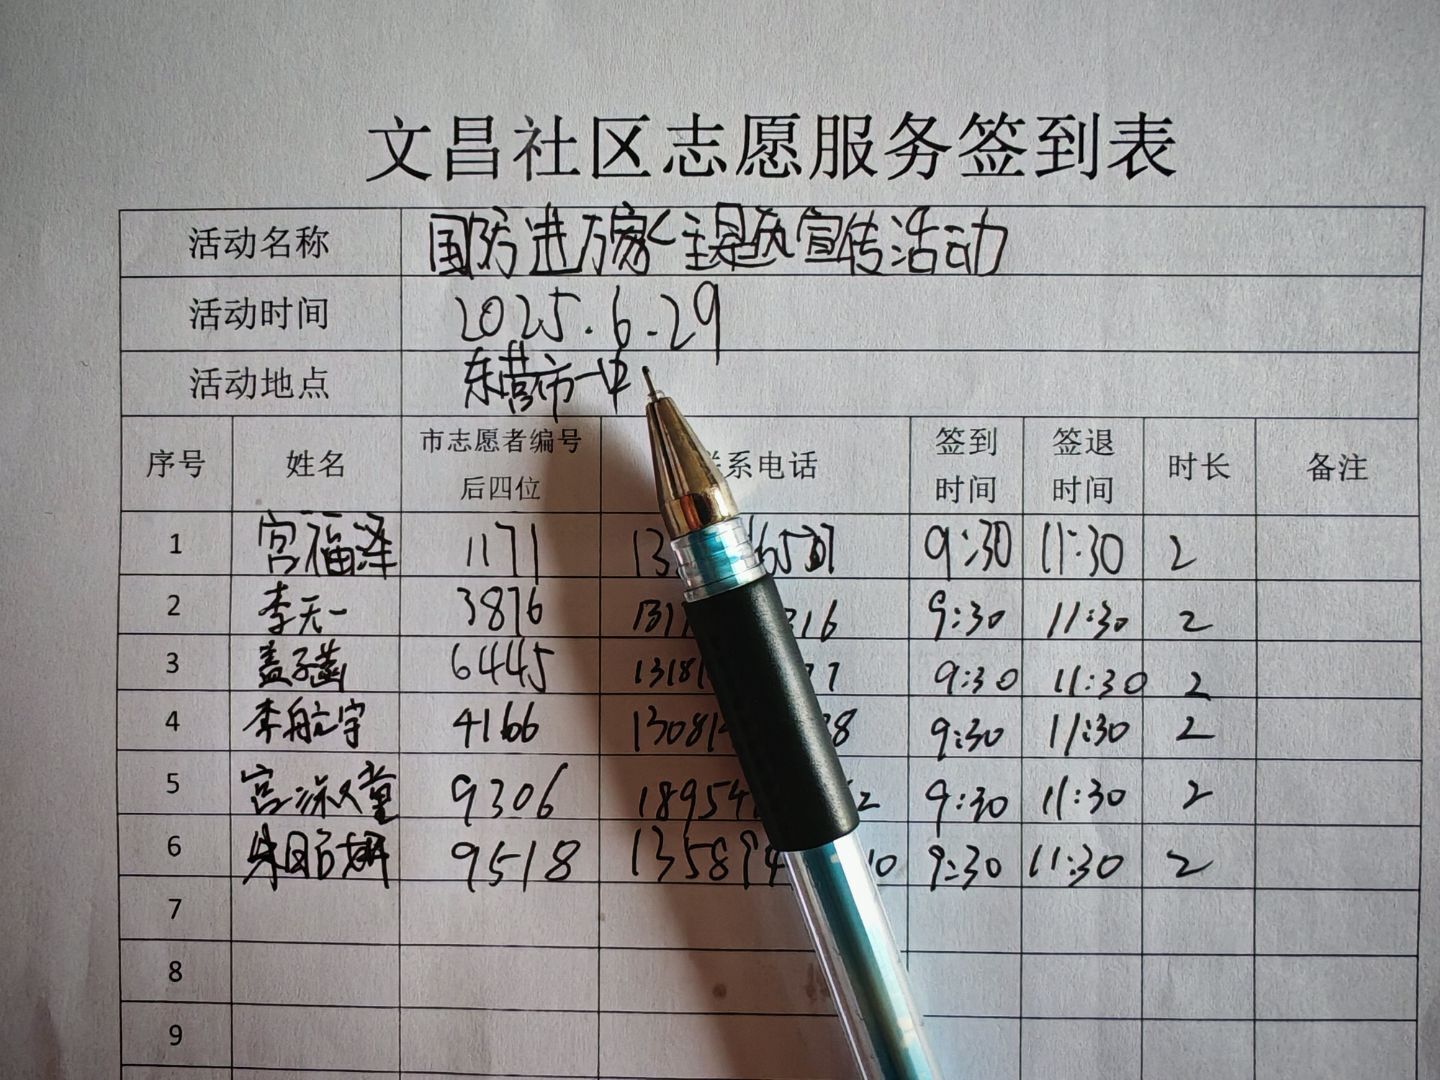 文昌社区志愿服务签到表
活动名称 国防进万家主题宣传活动
活动时间 2025.6.29
活动地点 东营市一中
序号 姓名 市志愿者编号后四位 系电话 签到时间 签退时间 时长 备注
1 宫福泽 1171 13 6507 9:30 11:30 2
2 李天一 3876 131 316 9:30 11:30 2
3 盖子菡 6445 1318 77 9:30 11:30 2
4 李航宇 4166 13081 88 9:30 11:30 2
5 宫 9306 18954 2 9:30 11:30 2
6 朱 9518 13589 10 9:30 11:30 2
7
8
9